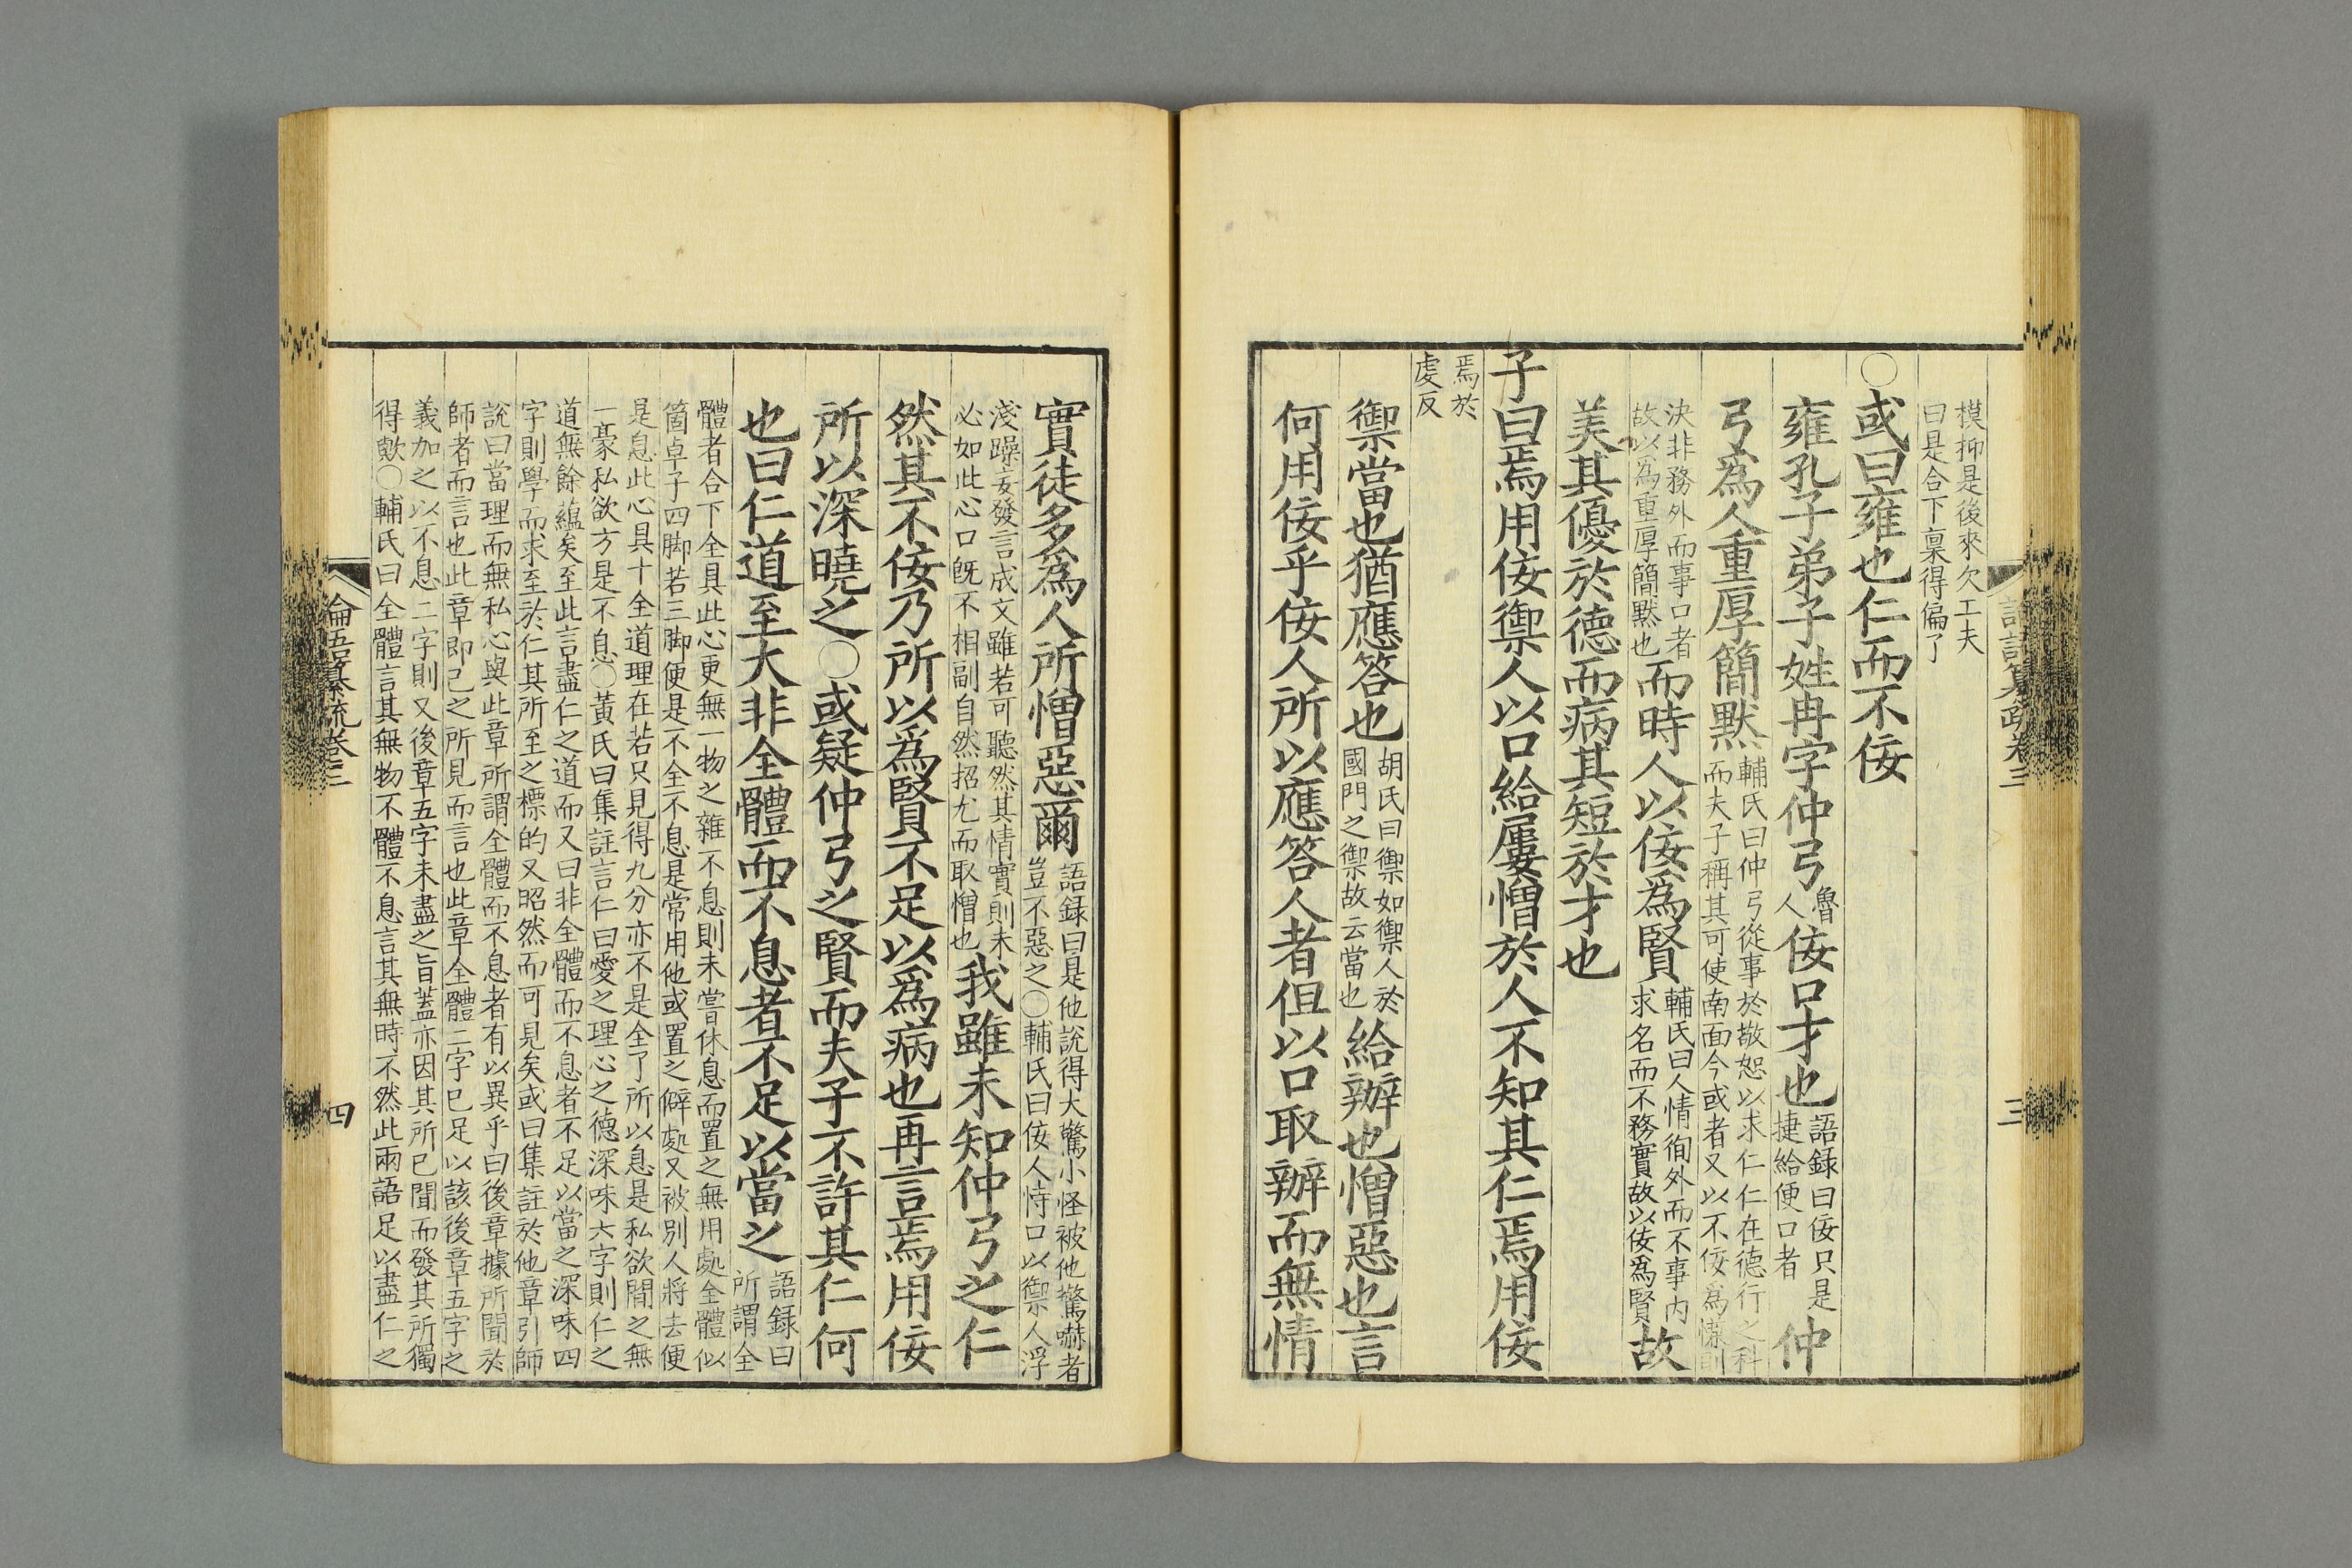 論語纂疏卷三
三
模抑是後來欠工夫
曰是合下稟得偏了
○或曰雍也仁而不佞
雍孔子弟子姓冉字仲弓
魯
人
佞口才也
語録曰佞只是
捷給便口者
仲
弓爲人重厚簡默
輔氏曰仲弓從事於敬恕以求仁仁在德行之科
而夫子稱其可使南面今或者又以不佞爲慊則
決非務外而事口者
故以爲重厚簡默也
而時人以佞爲賢
輔氏曰人情徇外而不事内
求名而不務實故以佞爲賢
故
美其優於德而病其短於才也
子曰焉用佞禦人以口給屢憎於人不知其仁焉用佞
焉於
虔反
禦當也猶應答也
胡氏曰禦如禦人於
國門之禦故云當也
給辦也憎惡也言
何用佞乎佞人所以應答人者但以口取辦而無情
實徒多爲人所憎惡爾
語録曰是他說得大驚小怪被他驚嚇者
豈不惡之○輔氏曰佞人恃口以禦人浮
淺躁妄發言成文雖若可聽然其情實則未
必如此心口既不相副自然招尤而取憎也
我雖未知仲弓之仁
然其不佞乃所以爲賢不足以爲病也再言焉用佞
所以深曉之○或疑仲弓之賢而夫子不許其仁何
也曰仁道至大非全體而不息者不足以當之
語録曰
所謂全
體者合下全具此心更無一物之雜不息則未嘗休息而置之無用處全體似
箇卓子四脚若三脚便是不全不息是常用他或置之僻處又被別人將去便
是息此心具十全道理在若只見得九分亦不是全了所以息是私欲間之無
一豪私欲方是不息○黃氏曰集註言仁曰愛之理心之德深味六字則仁之
道無餘蘊矣至此言盡仁之道而又曰非全體而不息者不足以當之深味四
字則學而求至於仁其所至之標的又昭然而可見矣或曰集註於他章引師
說曰當理而無私心與此章所謂全體而不息者有以異乎曰後章據所聞於
師者而言也此章即己之所見而言也此章全體二字已足以該後章五字之
義加之以不息二字則又後章五字未盡之旨蓋亦因其所已聞而發其所獨
得歟○輔氏曰全體言其無物不體不息言其無時不然此兩語足以盡仁之
論語纂疏卷三
四